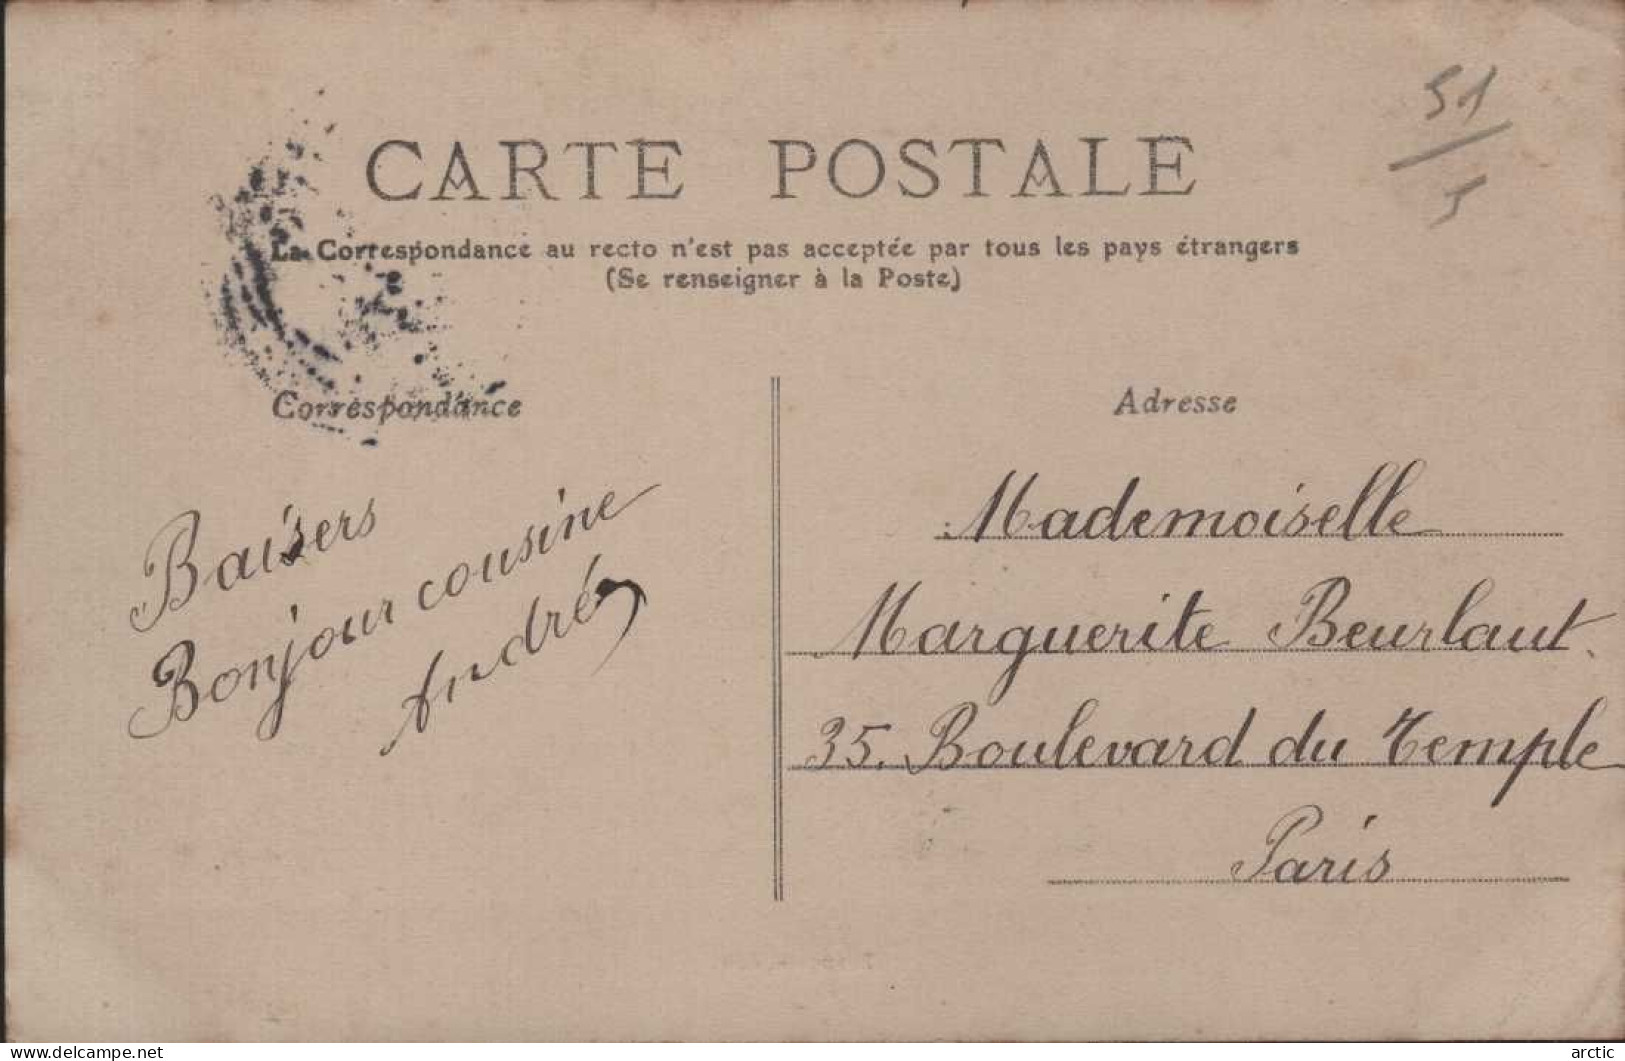 51
5
CARTE POSTALE
La Correspondance au recto n'est pas acceptée par tous les pays étrangers
(Se renseigner à la Poste)
Correspondance
Baisers
Bonjour cousine
André
Adresse
Mademoiselle
Marguerite Beurlaut.
35. Boulevard du Temple
Paris
www.delcampe.net
arctic